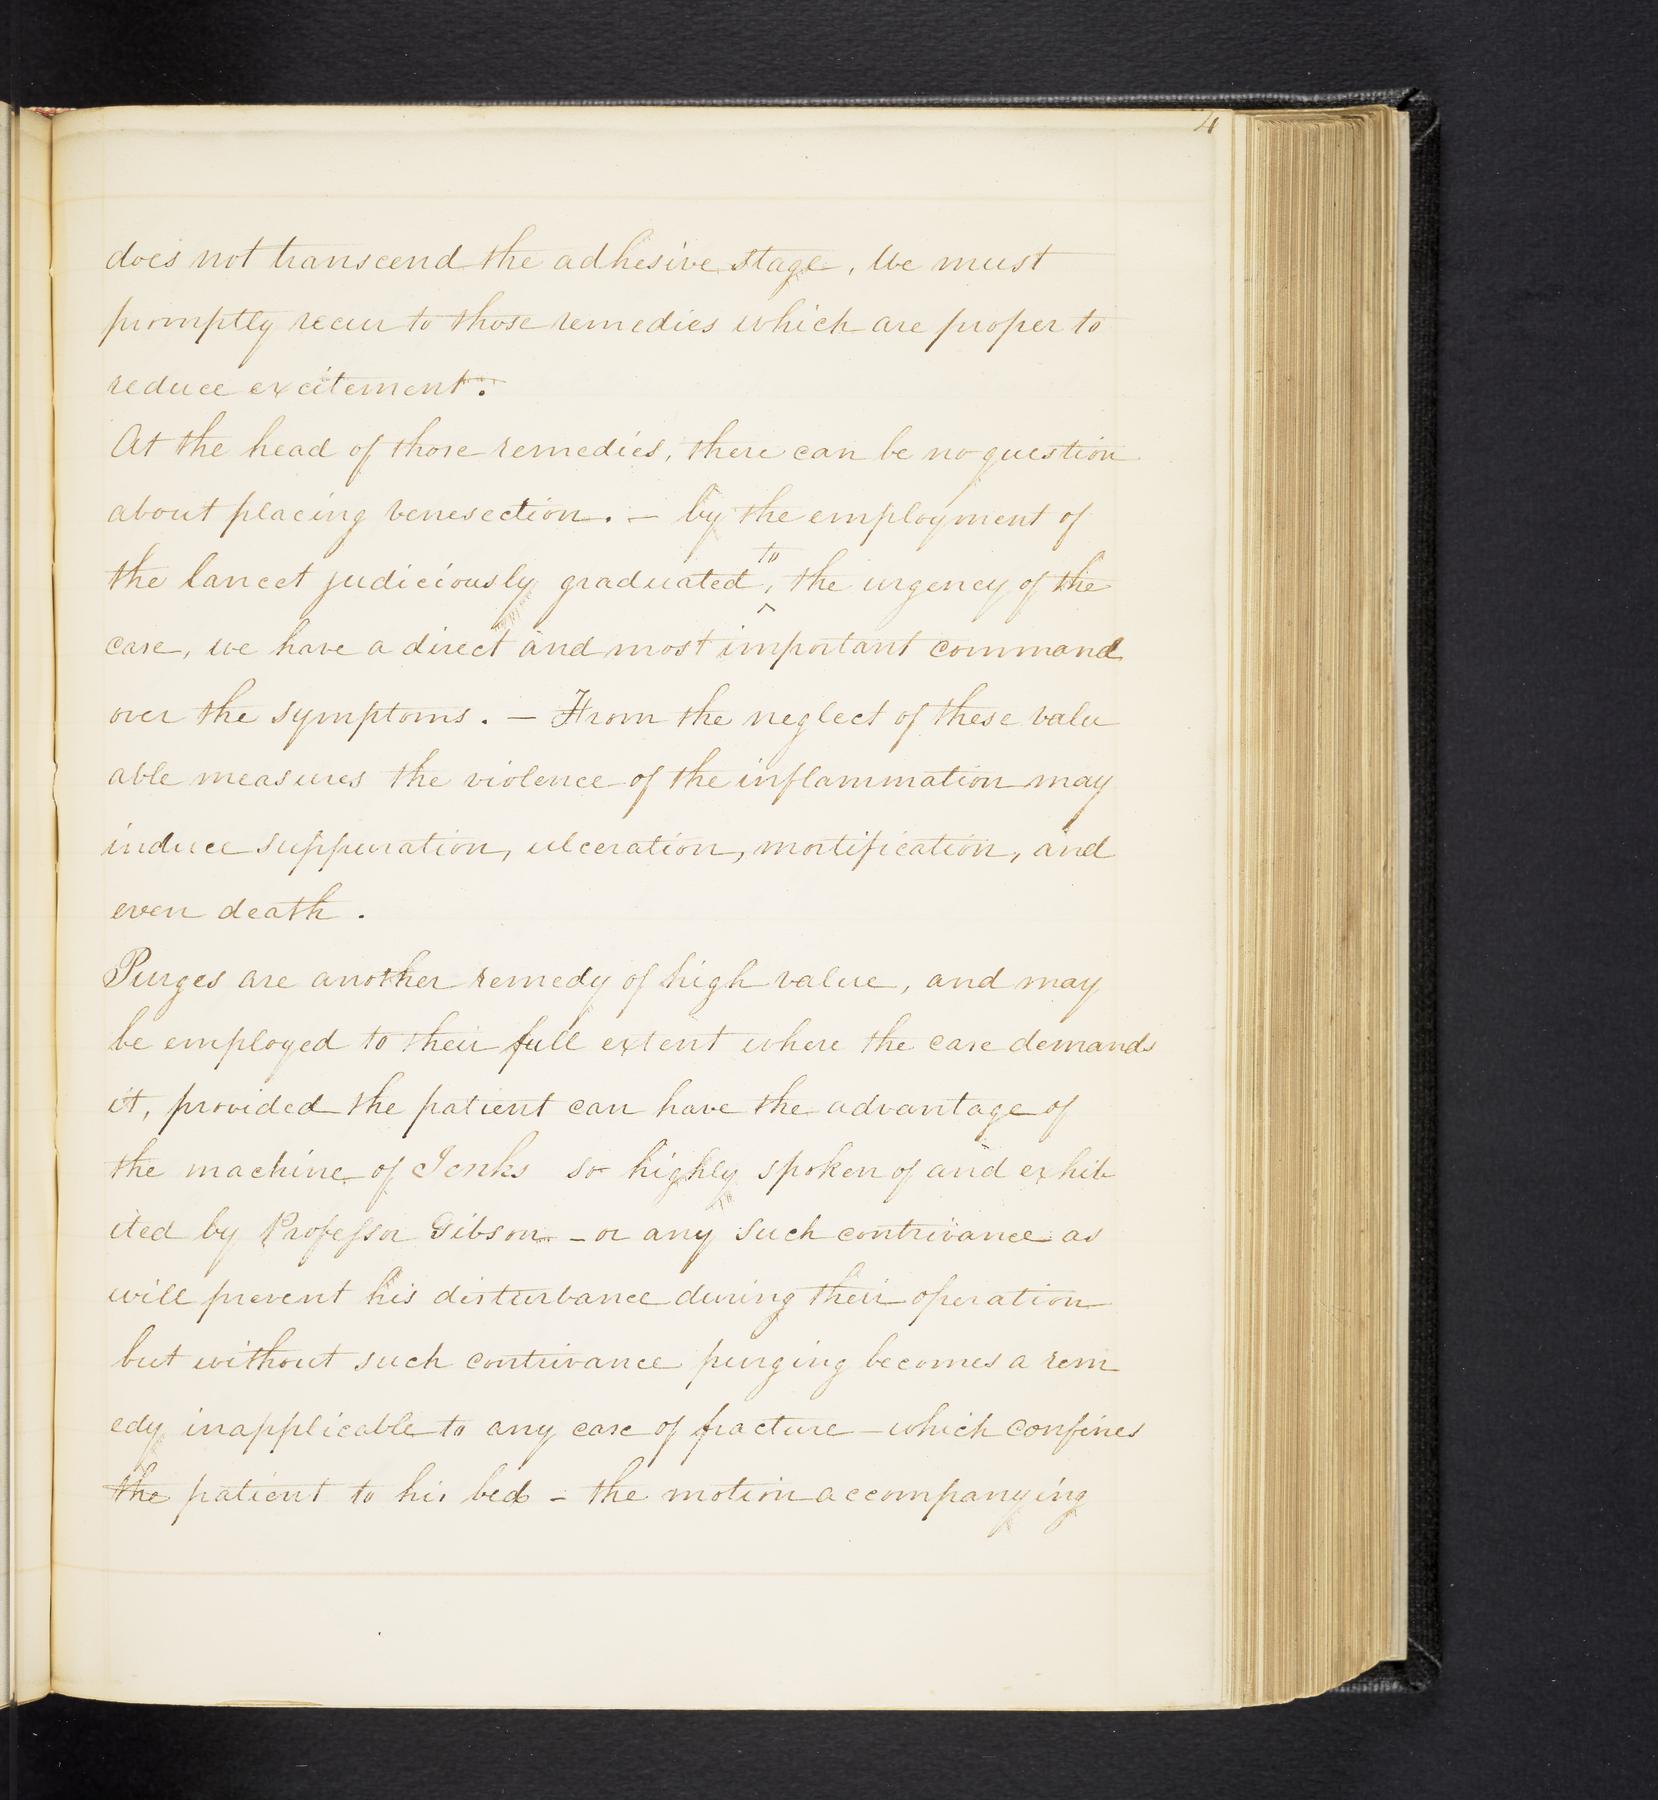 4
does not transcend the adhesive stage, We must
promptly recur to those remedies which are proper to
reduce excitement.
At the head of those remedies, there can be no question
about placing venesection. – by the employment of
to
the lancet judiciously graduated, ^ the urgency of the
case, we have a direct and most important command
over the symptoms. – From the neglect of these valu
able measures the violence of the inflammation may
induce suppuration, ulceration, mortification, and
even death.
Purges are another remedy of high value, and may
be employed to their full extent where the case demands
it, provided the patient can have the advantage of
the machine of Jenks so highly spoken of and exhib
ited by Professor Gibson – or any such contrivance as
will prevent his disturbance during their operation
but without such contrivance purging becomes a rem
edy inapplicable to any case of fracture – which confines
the patient to his bed – the motion accompanying